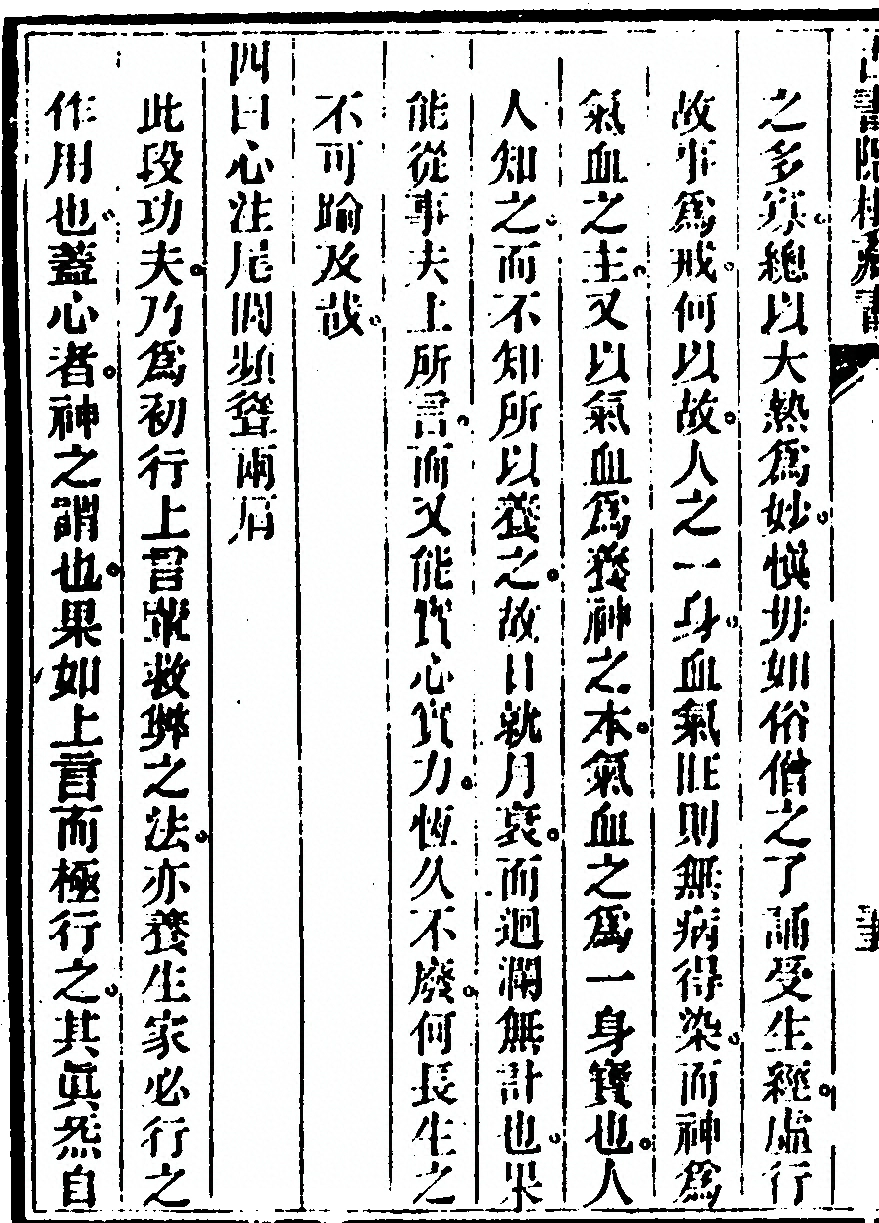 之多寡總以大熱爲妙愼毋如俗僧之了誦受生經虛行
故事爲戒何以故人之一身血氣旺則無病得染而神爲
氣血之主又以氣血爲養神之本氣血之爲一身寶也人
人知之而不知所以養之故日就月衰而迴瀾無計也果
能從事夫上所言而又能實心實力恆久不廢何長生之
不可踰及哉
四曰心注尾閭頻聳兩肩
此段功夫乃爲初行上言雖救弊之法亦養生家必行之
作用也蓋心者神之謂也果如上言而極行之其眞炁自